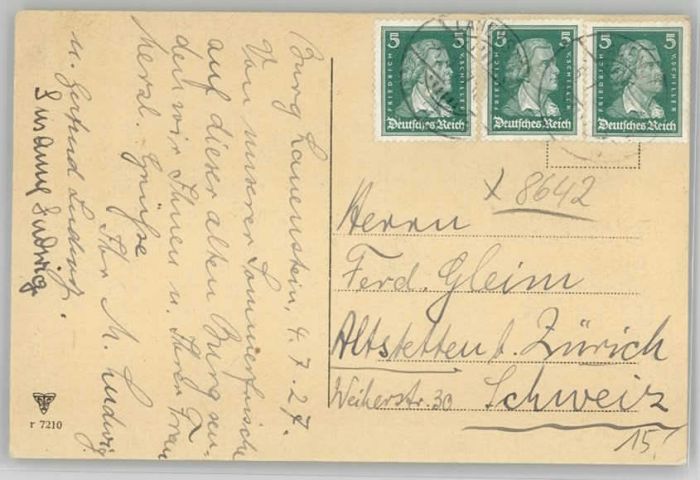 Burg Lauenstein, 4.7.27.
Von unserer Sommerfrische
auf dieser alten Burg sen-
den wir Ihnen u. Ihrer Frau
herzl. Grüße
Ihr M. Ludwig
u. Gertrud Ludwig.
Susanne Ludwig
r 7210
5 5
FRIEDRICH V. SCHILLER
Deutsches Reich
5 5
FRIEDRICH V. SCHILLER
Deutsches Reich
5 5
FRIEDRICH V. SCHILLER
Deutsches Reich
x 8642
Herrn
Ferd. Gleim
Altstetten b. Zürich
Weiherstr. 30 Schweiz
15.